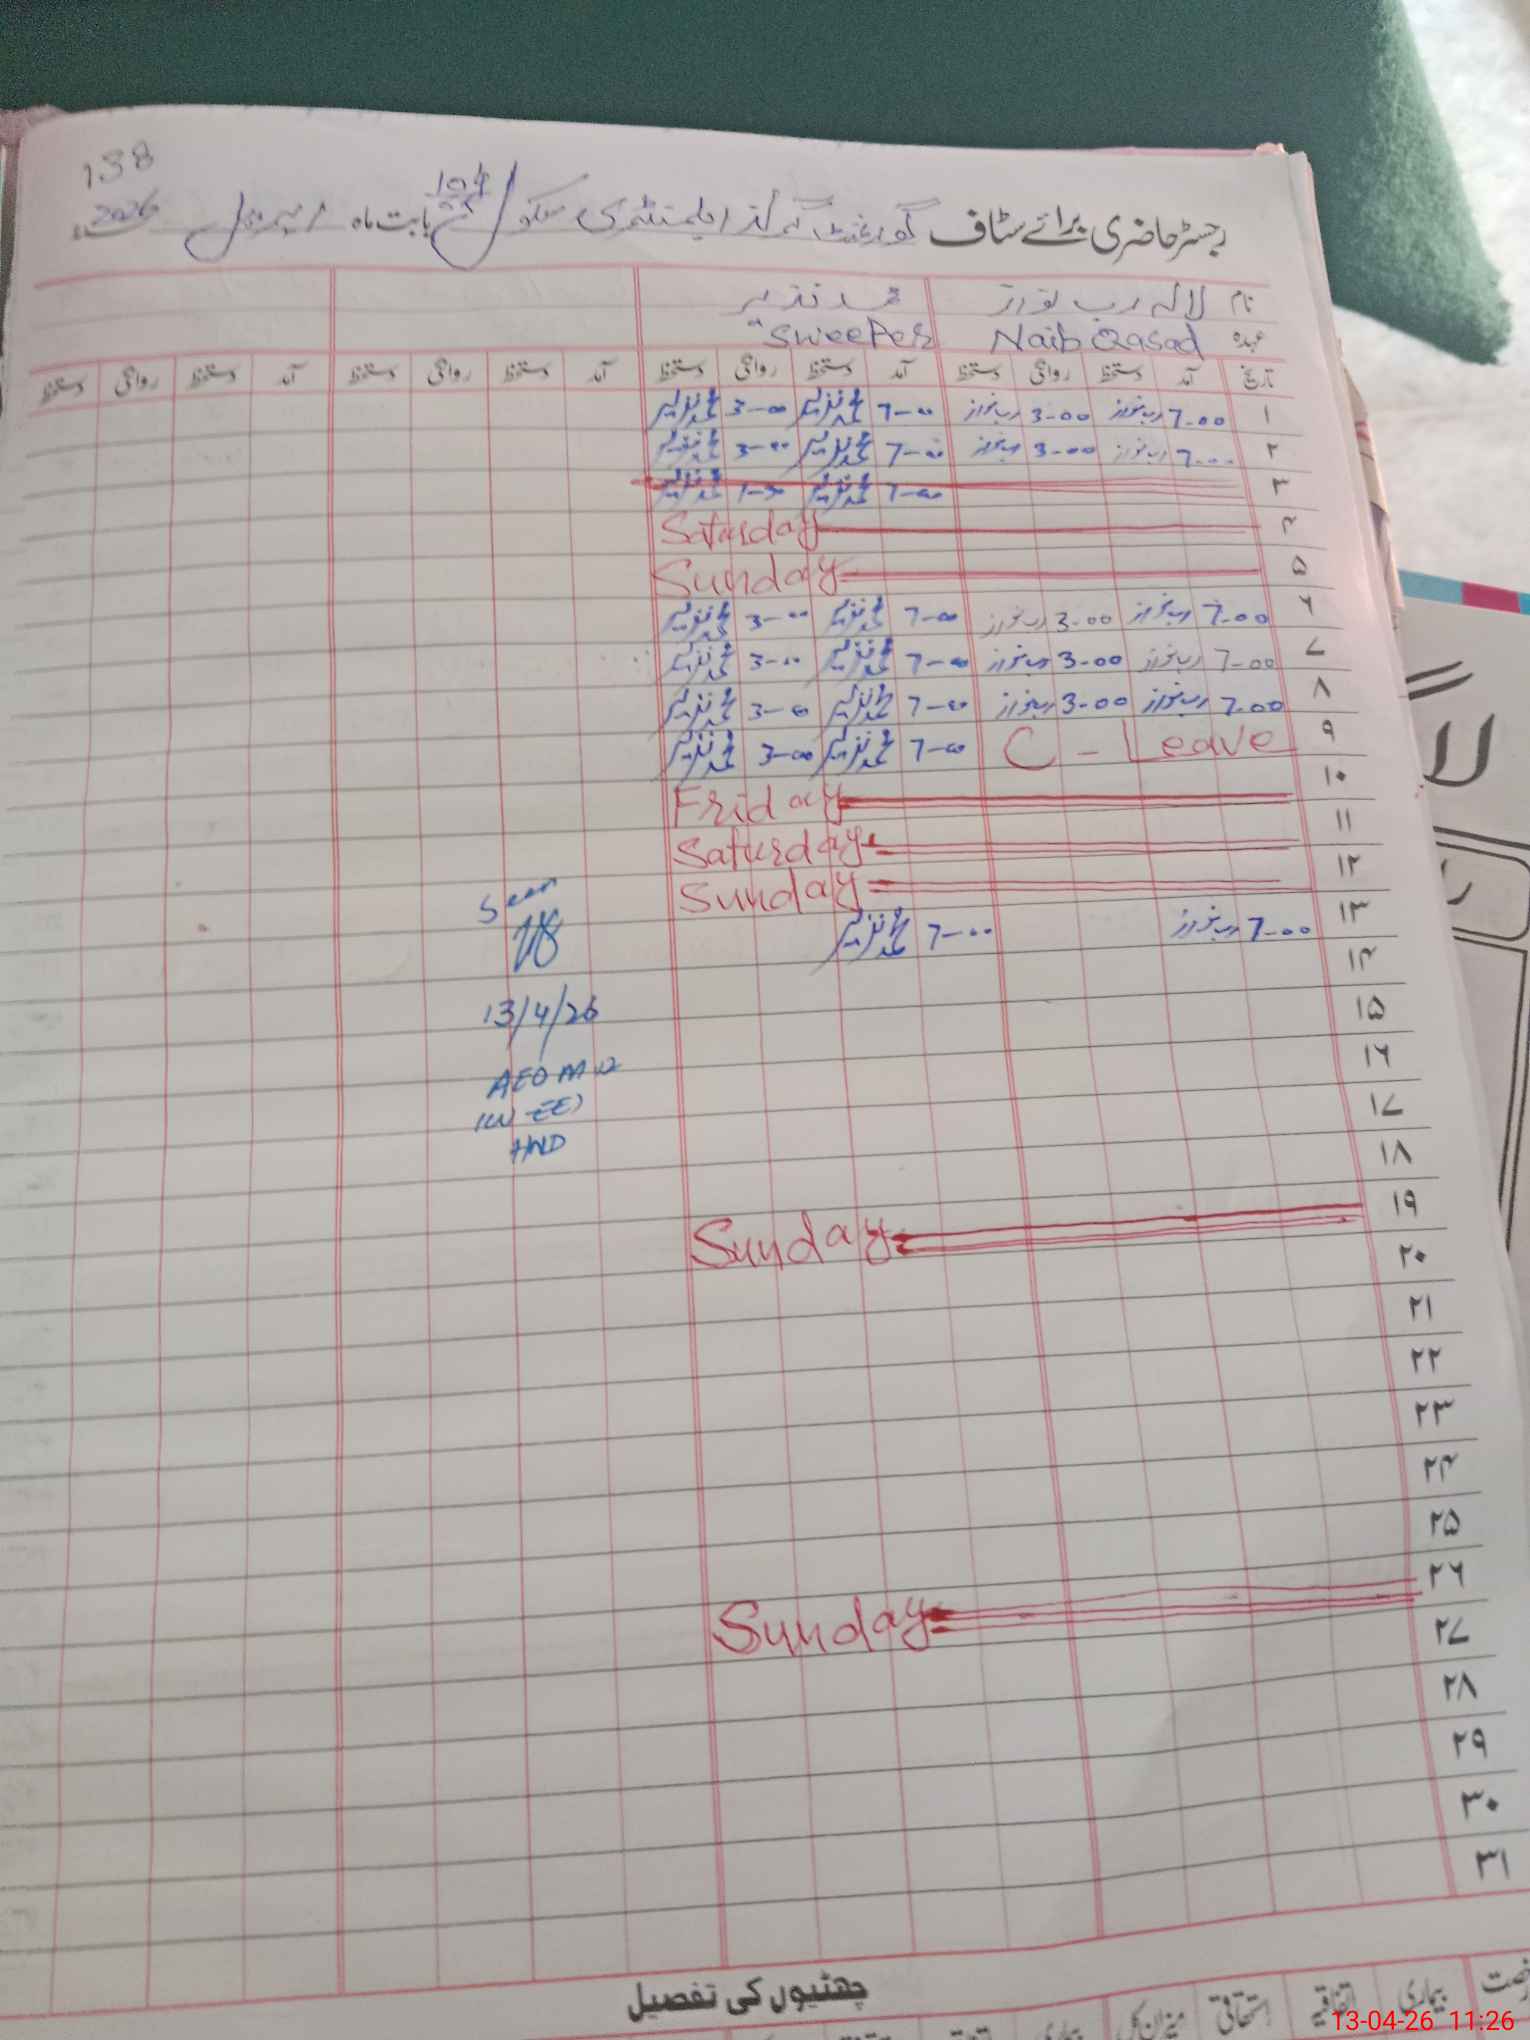 138
رجسٹر حاضری برائے سٹاف گورنمنٹ گرلز ایلیمنٹری سکول 104 بابت ماہ اپریل 2026ء
نام لالہ رب نواز محمد نذیر
عہدہ Naib Qasad Sweeper
تاریخ آمد دستخط روانگی دستخط آمد دستخط روانگی دستخط آمد دستخط روانگی دستخط آمد دستخط روانگی دستخط
۱ 7-00 رب نواز 3-00 رب نواز 7-00 محمد نذیر 3-00 محمد نذیر
۲ 7-00 رب نواز 3-00 رب نواز 7-00 محمد نذیر 3-00 محمد نذیر
۳ 7-00 محمد نذیر 1-30 محمد نذیر
۴ Saturday
۵ Sunday
۶ 7-00 رب نواز 3-00 رب نواز 7-00 محمد نذیر 3-00 محمد نذیر
۷ 7-00 رب نواز 3-00 رب نواز 7-00 محمد نذیر 3-00 محمد نذیر
۸ 7-00 رب نواز 3-00 رب نواز 7-00 محمد نذیر 3-00 محمد نذیر
۹ C - Leave 7-00 محمد نذیر 3-00 محمد نذیر
۱۰ Friday
۱۱ Saturday
۱۲ Sunday
۱۳ 7-00 رب نواز 7-00 محمد نذیر
Seen
13/4/26
AEO
HND
۱۴
۱۵
۱۶
۱۷
۱۸
۱۹ Sunday
۲۰
۲۱
۲۲
۲۳
۲۴
۲۵
۲۶ Sunday
۲۷
۲۸
۲۹
۳۰
۳۱
چھٹیوں کی تفصیل
بیماری اتفاقیہ استحقاقی میزان کل بیماری
13-04-26 11:26